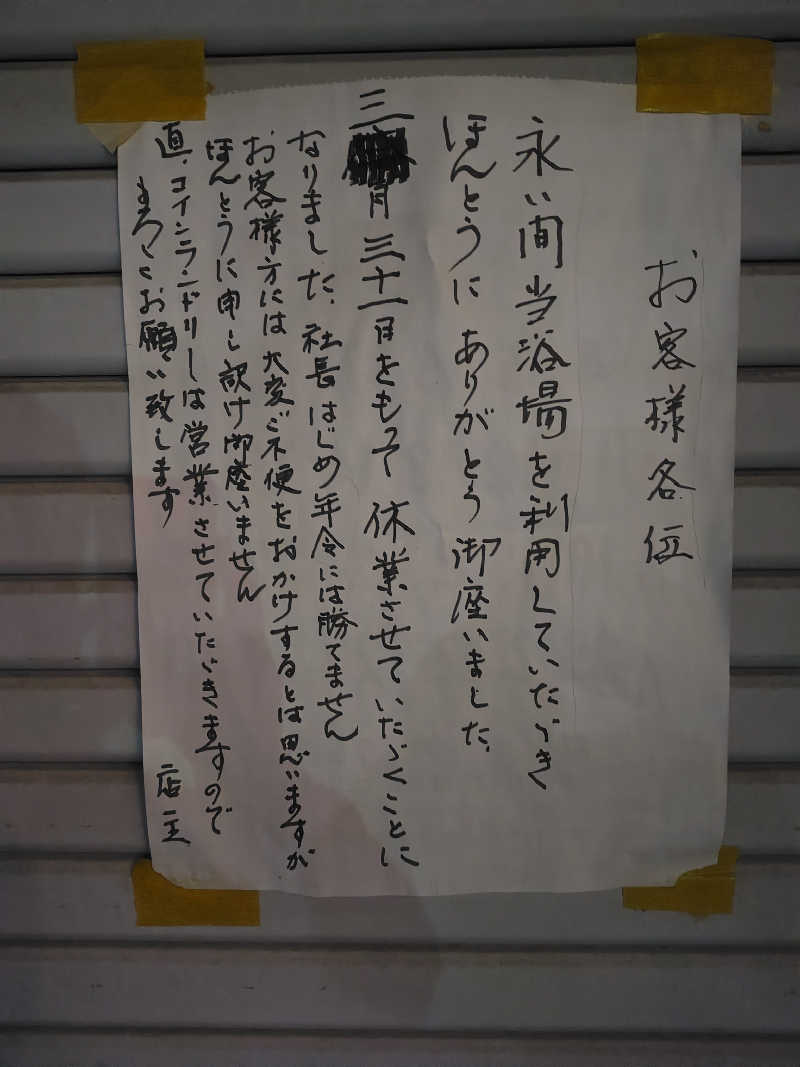 お客様各位
永い間当浴場を利用していたゞき
ほんとうにありがとう御座いました、
三月三十一日をもって休業させていたゞくことに
なりました、社長はじめ年令には勝てません
お客様方には大変ご不便をおかけするとは思いますが
ほんとうに申し訳け御座いません
直、コインランドリーは営業させていたゞきますので
よろしくお願い致します
店主